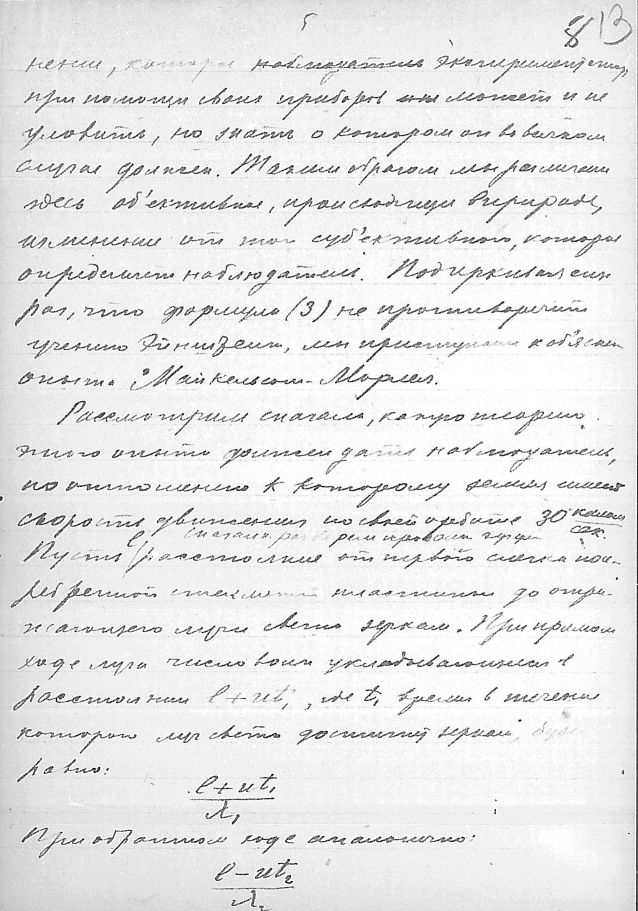 5
8 13
нении, которое наблюдатель экспериментатор
при помощи своих приборов может и не
уловить, но знать о котором он во всяком
случае должен. Таким образом мы различаем
здесь об'ективное, происходящее в природе,
изменение от того суб'ективного, которое
определяет наблюдатель. Подчеркивая еще
раз, что формула (3) не противоречит
учению Эйнштейна, мы приступаем к об'яснению
опыта Майкельсон-Морлея.
Рассмотрим сначала, какую теорию
этого опыта должен дать наблюдатель,
по отношению к которому земля имеет
скорость движения по своей орбите 30 килом/сек.
сначала
Пусть l расстояние от первого слегка
посеребренной стеклянной пластинки до отра-
жающего лучи света зеркала. При прямом
ходе луча число волн укладывающихся в
расстоянии l + ut₁, где t₁ время в течение
которого луч света достигнет зеркала, будет
равно:
l + ut₁
λ₁
При обратном ходе аналогично:
l - ut₂
λ₂